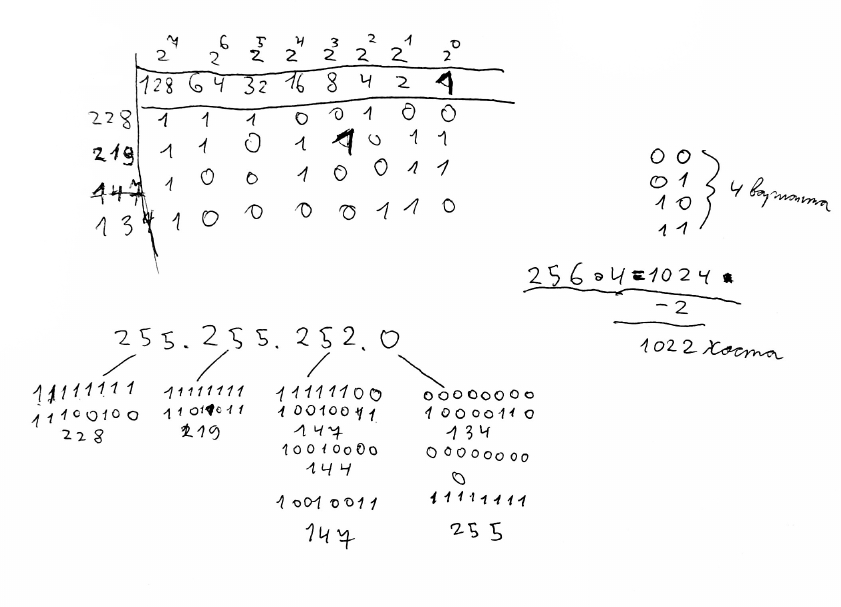 2^7 2^6 2^5 2^4 2^3 2^2 2^1 2^0
128 64 32 16 8 4 2 1
228 1 1 1 0 0 1 0 0
219 1 1 0 1 1 0 1 1
147 1 0 0 1 0 0 1 1
134 1 0 0 0 0 1 1 0
00
01
10
11
4 варианта
256•4=1024
-2
1022 хоста
255.255.252.0
11111111 11111111 11111100 00000000
11100100 11011011 10010011 10000110
228 219 147 134
10010000 00000000
144 0
10010011 11111111
147 255